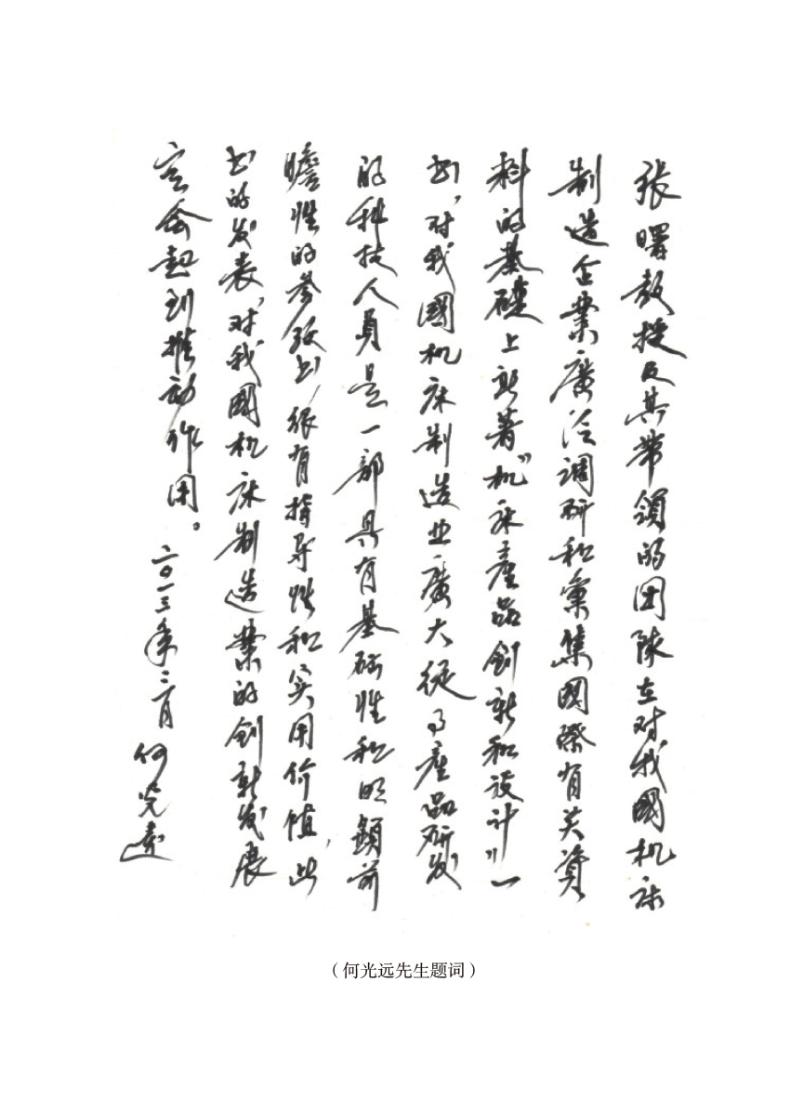 张曙教授及其带领的团队在对我國机床
制造企業廣泛調研和彙集國際有关資
料的基礎上新著“机床產品創新和设计”一
书，对我國机床制造业廣大從事產品研发
的科技人員是一部具有基础性和明顯前
瞻性的参考书，很有指导性和实用价值，此
书的发表，对我國机床制造業的創新发展
定会起到推动作用。
二〇一三年二月 何光遠
（何光远先生题词）